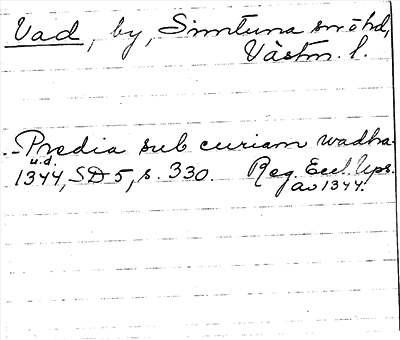 Vad, by, Simtuna sn o hd,
Västm. l.
- Predia sub curiam wadha
u.d.
1344, SD 5, s. 330. Reg. Eccl. Ups.
av 1344.